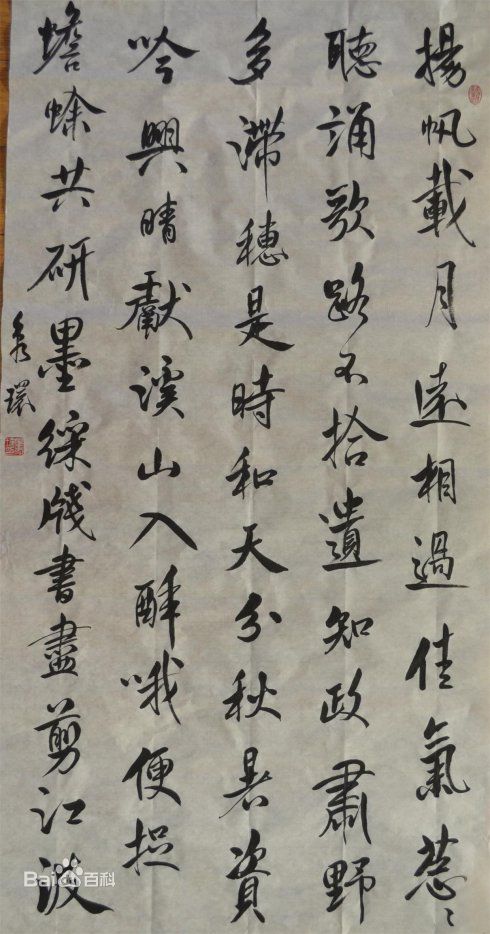 揚帆載月遠相過佳氣葱〻
聽誦歌路不拾遺知政肅野
多滯穗是時和天分秋暑資
吟興晴獻溪山入醉哦便捉
蟾蜍共研墨綵牋書盡剪江波
秀環
Bai百科